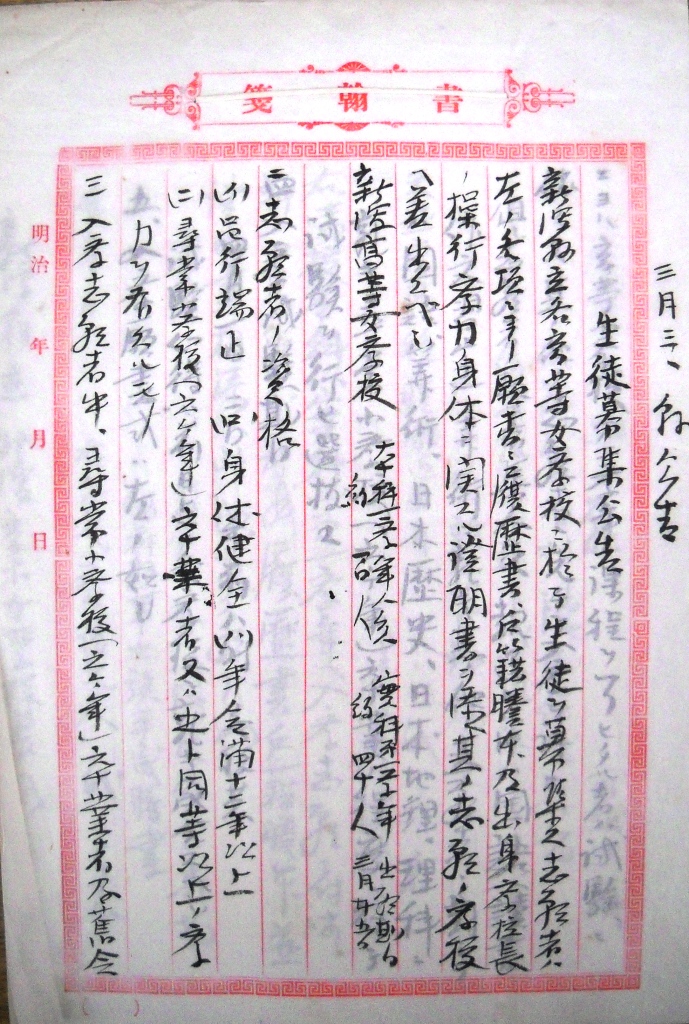 書翰箋
三月三、縣公告
生徒募集公告
新潟縣立各高等女学校ニ於テ生徒ヲ募集ス志願者ハ
左ノ各項ニヨリ願書ニ履歴書、戸籍謄本及出身学校長
ノ操行学力身体ニ関スル證明書ヲ添其ノ志願ノ学校
ヘ差出スベシ
新潟高等女学校 本科一学年 約百人 実科第一学年 約四十人 出願期日 三月廿五日
二志願者ノ資格
(イ)品行端正 (ロ)身体健全 (ハ)年令満十二年以上
(ニ)尋常小学校(六ヶ年)卒業ノ者又ハ之ト同等以上ノ学
力ヲ有スルモノ
三 入学志願者中、尋常小学校(六ヶ年)卒業者及舊令
明治 年 月 日